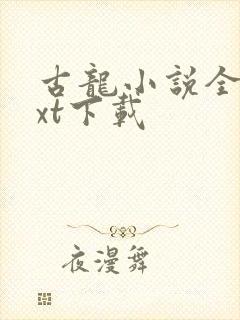 古龍小説全
xt下載
夜漫舞